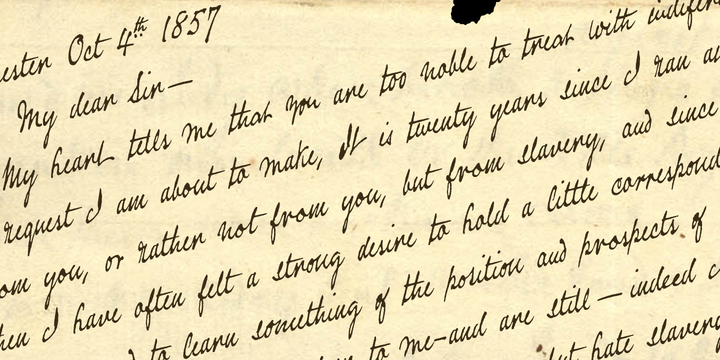 Oct 4th 1857
My dear Sir—
My heart tells me that you are too noble to treat with
request I am about to make, It is twenty years since I ran
you, or rather not from you, but from slavery, and since
I have often felt a strong desire to hold a little
to learn something of the position and prospects of
to me—and are still—indeed
but hate slavery